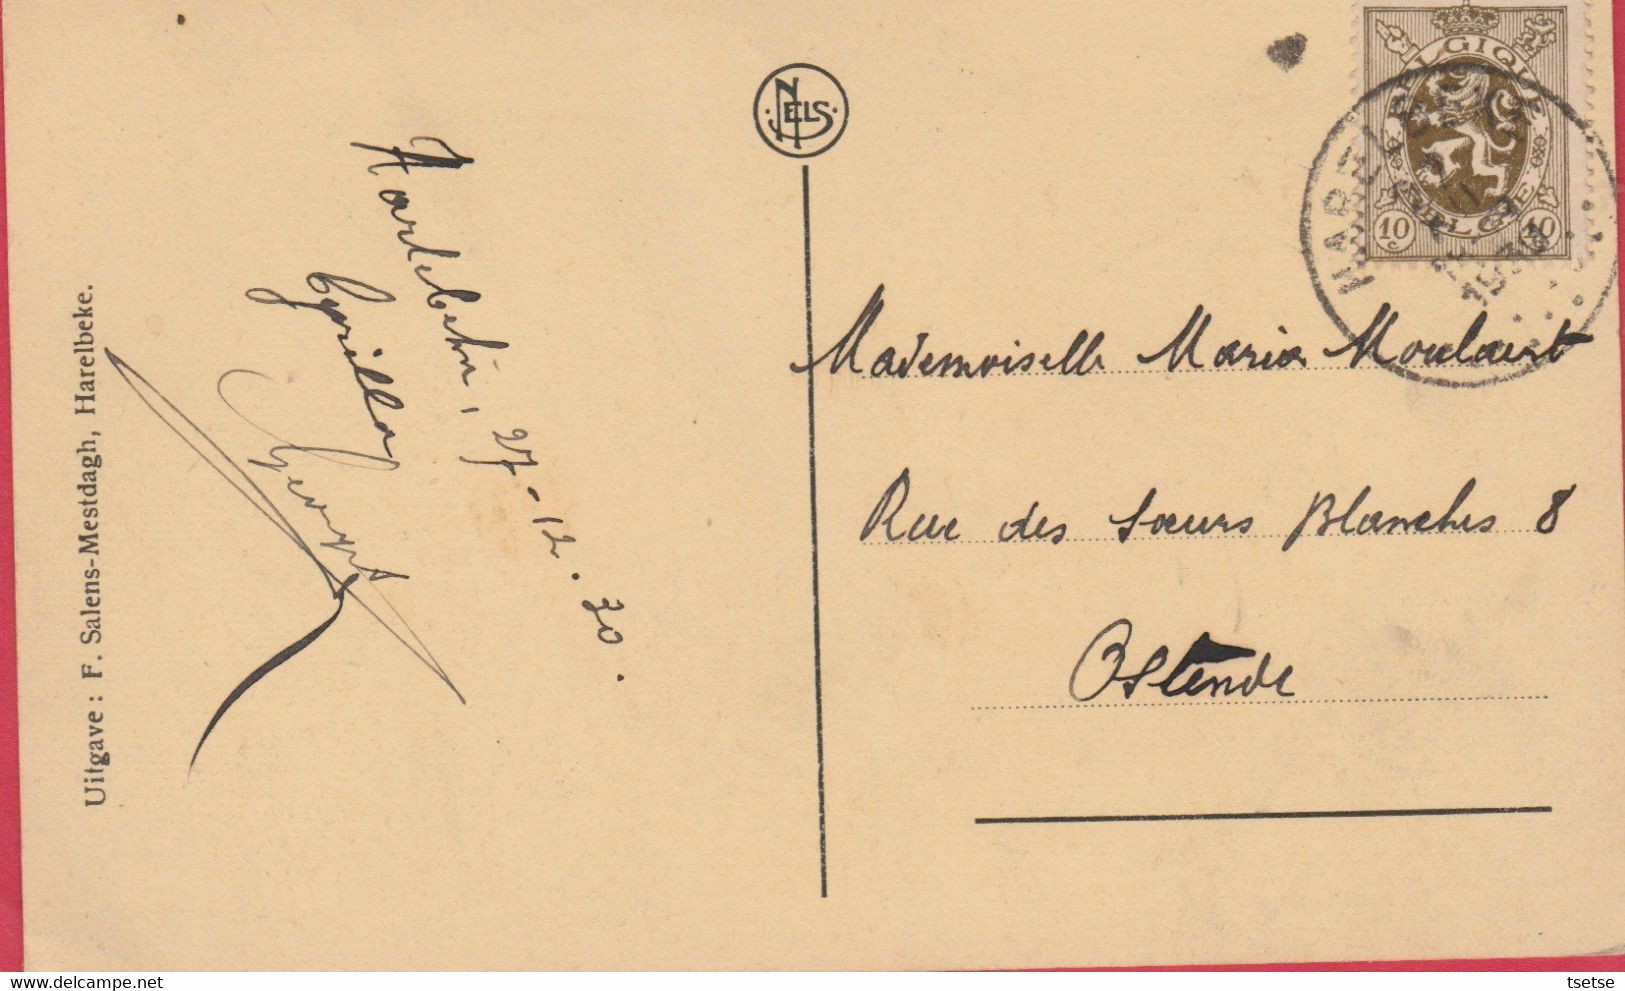 NELS
BELGIQUE
BELGIE
10 10
HARELBEKE
1930
Harlebeke, 27-12-30.
Cyrilla
Mademoiselle Maria Moulaert
Rue des Sœurs Blanches 8
Ostende
Uitgave : F. Salens-Mestdagh, Harelbeke.
tsetse